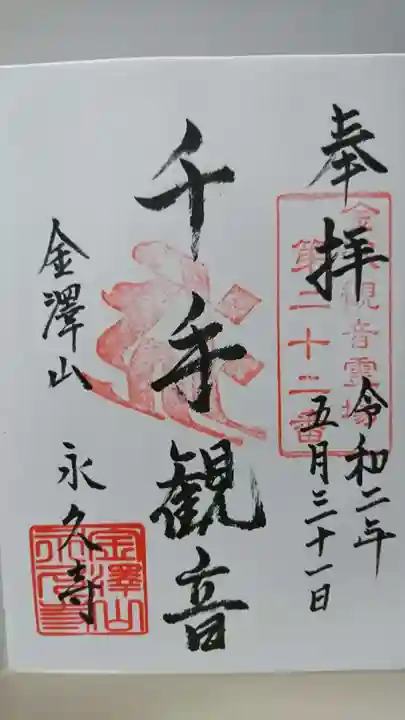 奉拝
令和二年
五月三十一日
観音霊場
第二十二番
千手観音
金澤山
永久寺
金澤山